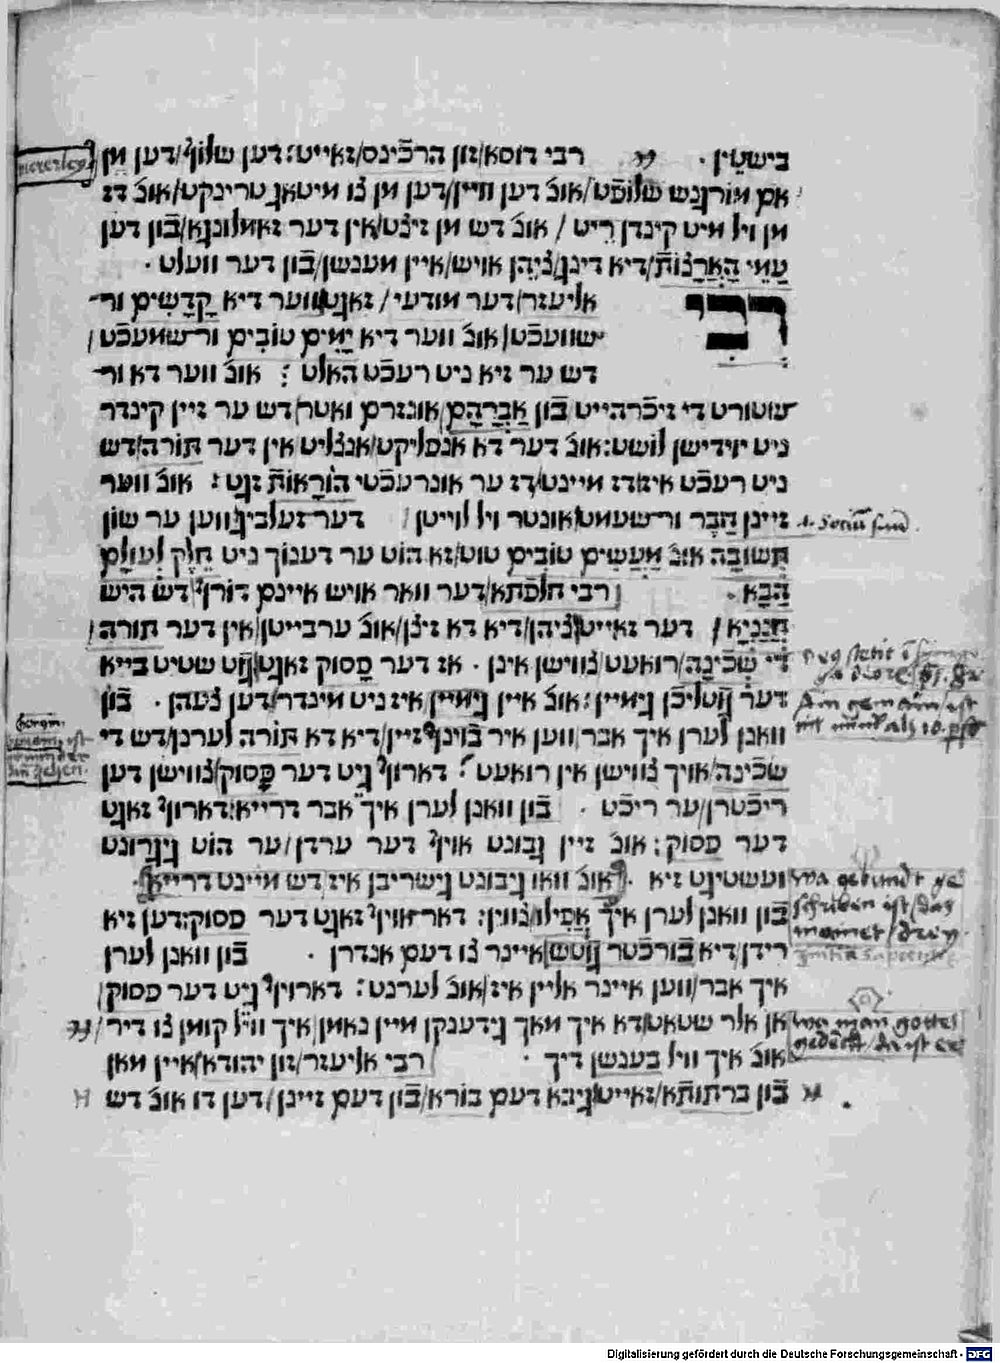 בישטין · רבי דוסא/זון הרכינס/זאייט: דען שלוף/דען מן
אם מורגנש שלופט/אונ דען וויין/דען מן צו מיטאג טרינקט/אונ דז
מן ויל מיט קינדן ריט / אונ דש מן זיצט/אין דער זאמלונגא/בון דען
עַמֵי הָאֲרָצוֹת/דיא דינג/ציהן אויש/איין מענשן/בון דער וועלט ·
רבי אליעזר/דער מודעי/ זאגט/ווער דיא קָדָשִים ור־
שוועכט/אונ ווער דיא יָמִים טוֹבִים ור־שמעכט/
דש ער זיא ניט רעכט האלט : אונ ווער דא ור־
שטורט די זיכרהייט בון אַבְרָהָם/אונזרם ואטר/דש ער זיין קינדר
ניט יודישן לושט: אונ דער דא אנפליקט/אנצליט אין דער תּוֹרה/דש
ניט רעכט איז/דז מיינט/דז ער אונרעכטי הוֹרָאוֹת זגט: אונ ווער
זיינן חבר ור־שעמט/אונטר ויל לוייטן/ דער זעלביג/ווען ער שון
תְּשׁוּבָה אונ מַעֲשִים טוֹבִים טוט/זא הוט ער דענוך ניט חֵלֶק לְעוֹלָם
הַבָּא · רבי חלפתא/דער וואר אויש איינם דורף/דש היש
חֲנַנְיָא/ דער זאייט/ציהן/דיא דא זיצן/אונ ערבייטן/אין דער תורה/
די שְכִינָה/רואעט/צווישן אינן · אז דער פָסוּק זאגט/גֹט שטיט בייא
דער גֹטליכן גימיין: אונ איין גימיין/איז ניט מינדר/דען צעהן · בון
וואנן לערן איך אבר/ווען איר בוינף זיין/דיא דא תּוֹרה לערנן/דש די
שכינה/אויך צווישן אין רואעט? דארוף גיט דער פָסוּק/צווישן דען
ריכטרן/ער ריכט · בון וואנן לערן איך אבר דרייא: דארוף זאגט
דער פסוק: אונ זיין גבונט אויף דער ערדן/ער הוט גיגרונט
ועשטיגט זיא · אונ וואו גיבונט גישריבן איז דש מיינט דרייא
בון וואנן לערן איך אֲפִילוּ/צווין: דארויף זאגט דער פסוק: דען זיא
רידן/דיא בורכטר גֹטש/איינר צו דעם אנדרן · בון וואנן לערן
איך אבר/ווען איינר אליין איז/אונ לערנט: דארויף גיט דער פסוק/
אן אלר שטאט/דא איך מאך גידענקן מיין נאמן/איך וויל קומן צו דיר/
אונ איך וויל בענשן דיך · רבי אליעזר/זון יהודא/איין מאן
בון ברתותא/זאייט/גיבא דעם בורא/בון דעם זיינן/דען דו אונ דש
Am gemain ist
nit minder als 10. pers
wa gebundt ge
schriben ist/das
mainet/drey.
wo man gottes
gedecht/da ist er
Digitalisierung gefördert durch die Deutsche Forschungsgemeinschaft - DFG